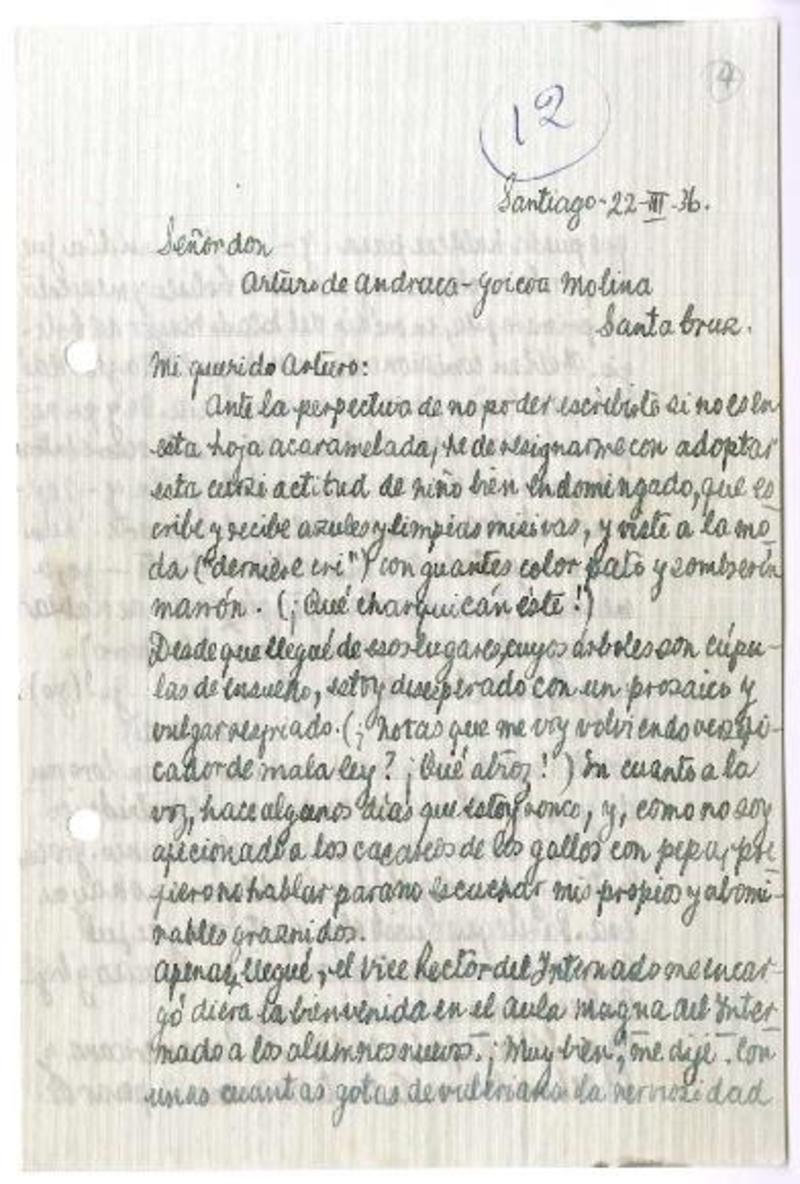 4
12
Santiago-22-III-36.
Señor don
Arturo de Andraca-Goicoa Molina
Santa Cruz.
Mi querido Arturo:
Ante la perpectiva de no poder escribirte si no es en
esta hoja acaramelada, he de resignarme con adoptar
esta cursi actitud de niño bien endomingado, que es
cribe y recibe azules y limpias misivas, y viste a la mo
da ("dernière cri") con guantes color pato y sombrerín
marrón. (¡Qué charquicán éste!)
Desde que llegué de esos lugares, cuyos árboles son cúpu-
las de ensueño, estoy desesperado con un prozaico y
vulgar resfriado. (¿Notas que me voy volviendo versifi-
cador de mala ley? ¡Qué atroz!) En cuanto a la
voz, hace algunos días que estoy ronco, y, como no soy
aficionado a los cacareos de los gallos con pepa, pre
fiero no hablar para no escuchar mis propios y abomi-
nables graznidos.
Apenas llegué, el Vice Rector del Internado me encar-
gó diera la bienvenida en el Aula Magna del Inter
nado a los alumnos nuevos. ¡Muy bien", me dije. Con
unas cuantas gotas de valeriana la nerviosidad